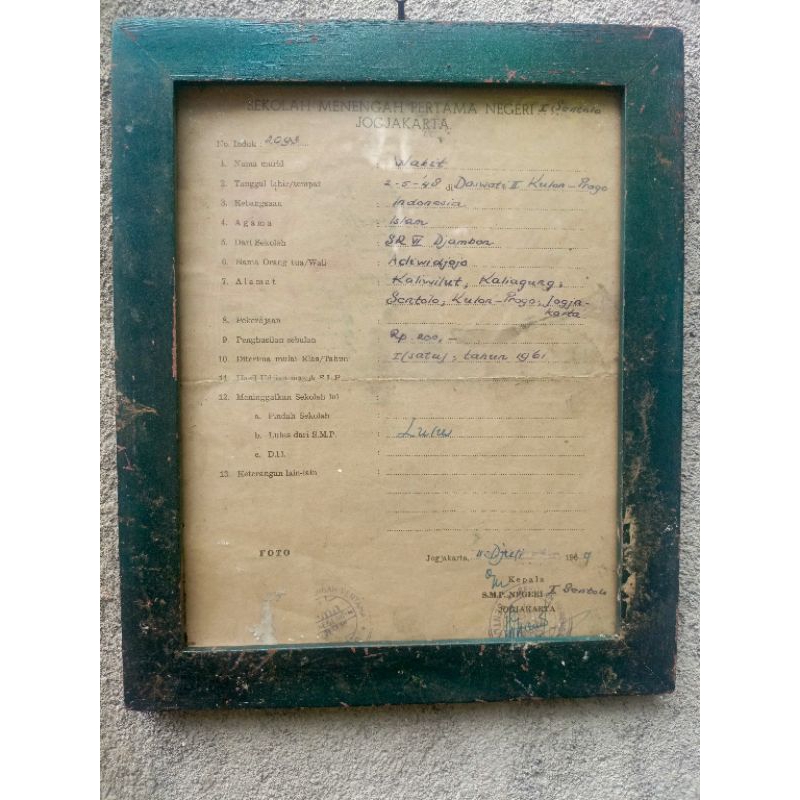 SEKOLAH MENENGAH PERTAMA NEGERI I Sentolo
JOGJAKARTA
No. Induk :
1. Nama murid :
2. Tanggal lahir/tempat : 2-5-'48 di II Kulon-Progo
3. Kebangsaan : Indonesia
4. Agama : Islam
5. Dari Sekolah : SR VI Djambon
6. Nama Orang tua/Wali : Adiwidjojo
7. Alamat : Kaliwilut, Kaliagung,
Sentolo, Kulon-Progo, Jogja-
karta
8. Pekerdjaan :
9. Penghasilan sebulan : Rp. 200,-
10. Diterima mulai Klas/Tahun : I (satu), tahun 1961
11.
12. Meninggalkan Sekolah ini
a. Pindah Sekolah :
b. Lulus dari S.M.P. : Lulus
c. D.l.l. :
13. Keterangan lain-lain :
FOTO
Jogjakarta, Djuli 196 9
Kepala
S.M.P. NEGERI I Sentolo
JOGJAKARTA